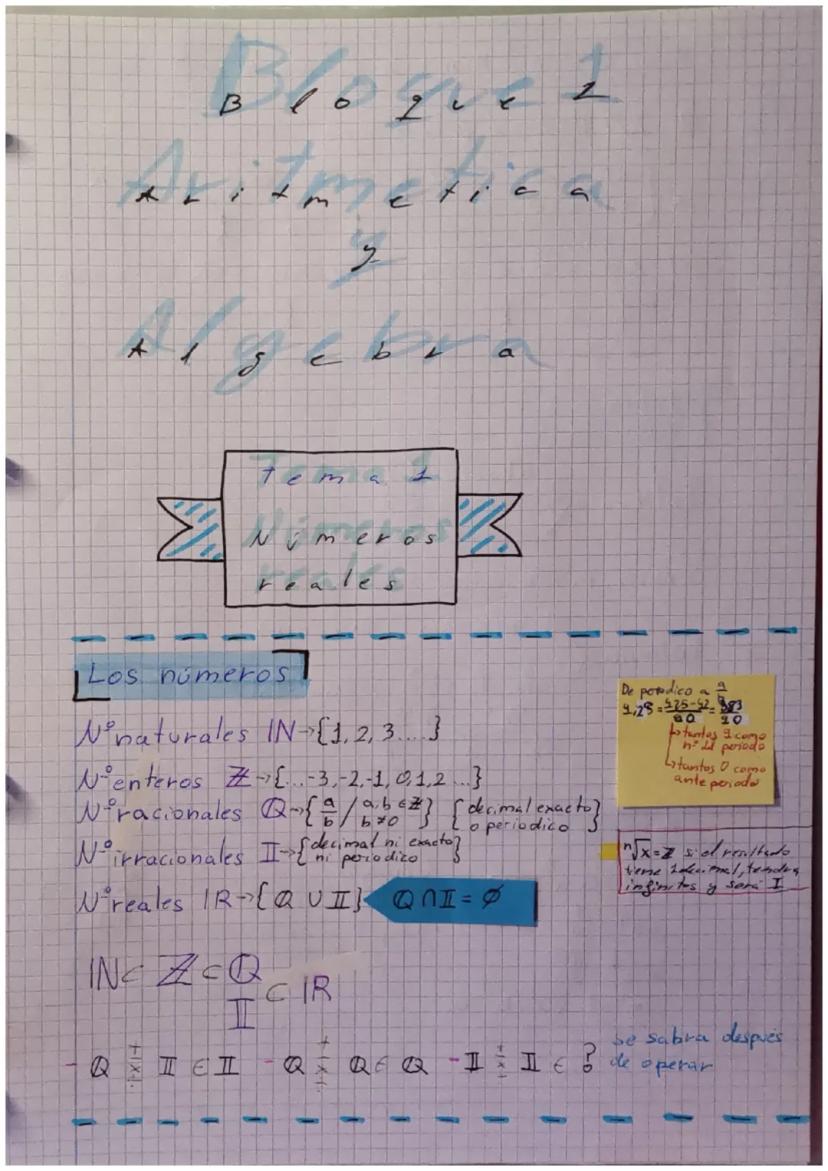 Bloque 1
Aritmetica
y
Algebra
Tema 1
Números
reales
Los números
Nº naturales ℕ→{1, 2, 3....}
Nº enteros ℤ→{...-3,-2,-1, 0,1,2...}
Nº racionales ℚ→{a/b / a,b ∈ ℤ b≠0} {decimal exacto o periodico}
Nº irracionales 𝕀→{decimal ni exacto ni periodico}
Nº reales ℝ→{ℚ ∪ 𝕀} ℚ∩𝕀 = ∅
De periodico a a/b
=425-42/90=383/90
↳tantos 9 como
nº del periodo
↳tantos 0 como
ante periodo
ⁿ√x=ℤ si el resultado
tiene 1 decimal, tendra
infinitos y será 𝕀
ℕ⊂ ℤ ⊂ ℚ
𝕀 ⊂ ℝ
- ℚ + - × ÷ 𝕀 ∈ 𝕀 - ℚ + - × ÷ ℚ ∈ ℚ - 𝕀 + - × ÷ 𝕀 ∈ ? se sabra después
de operar